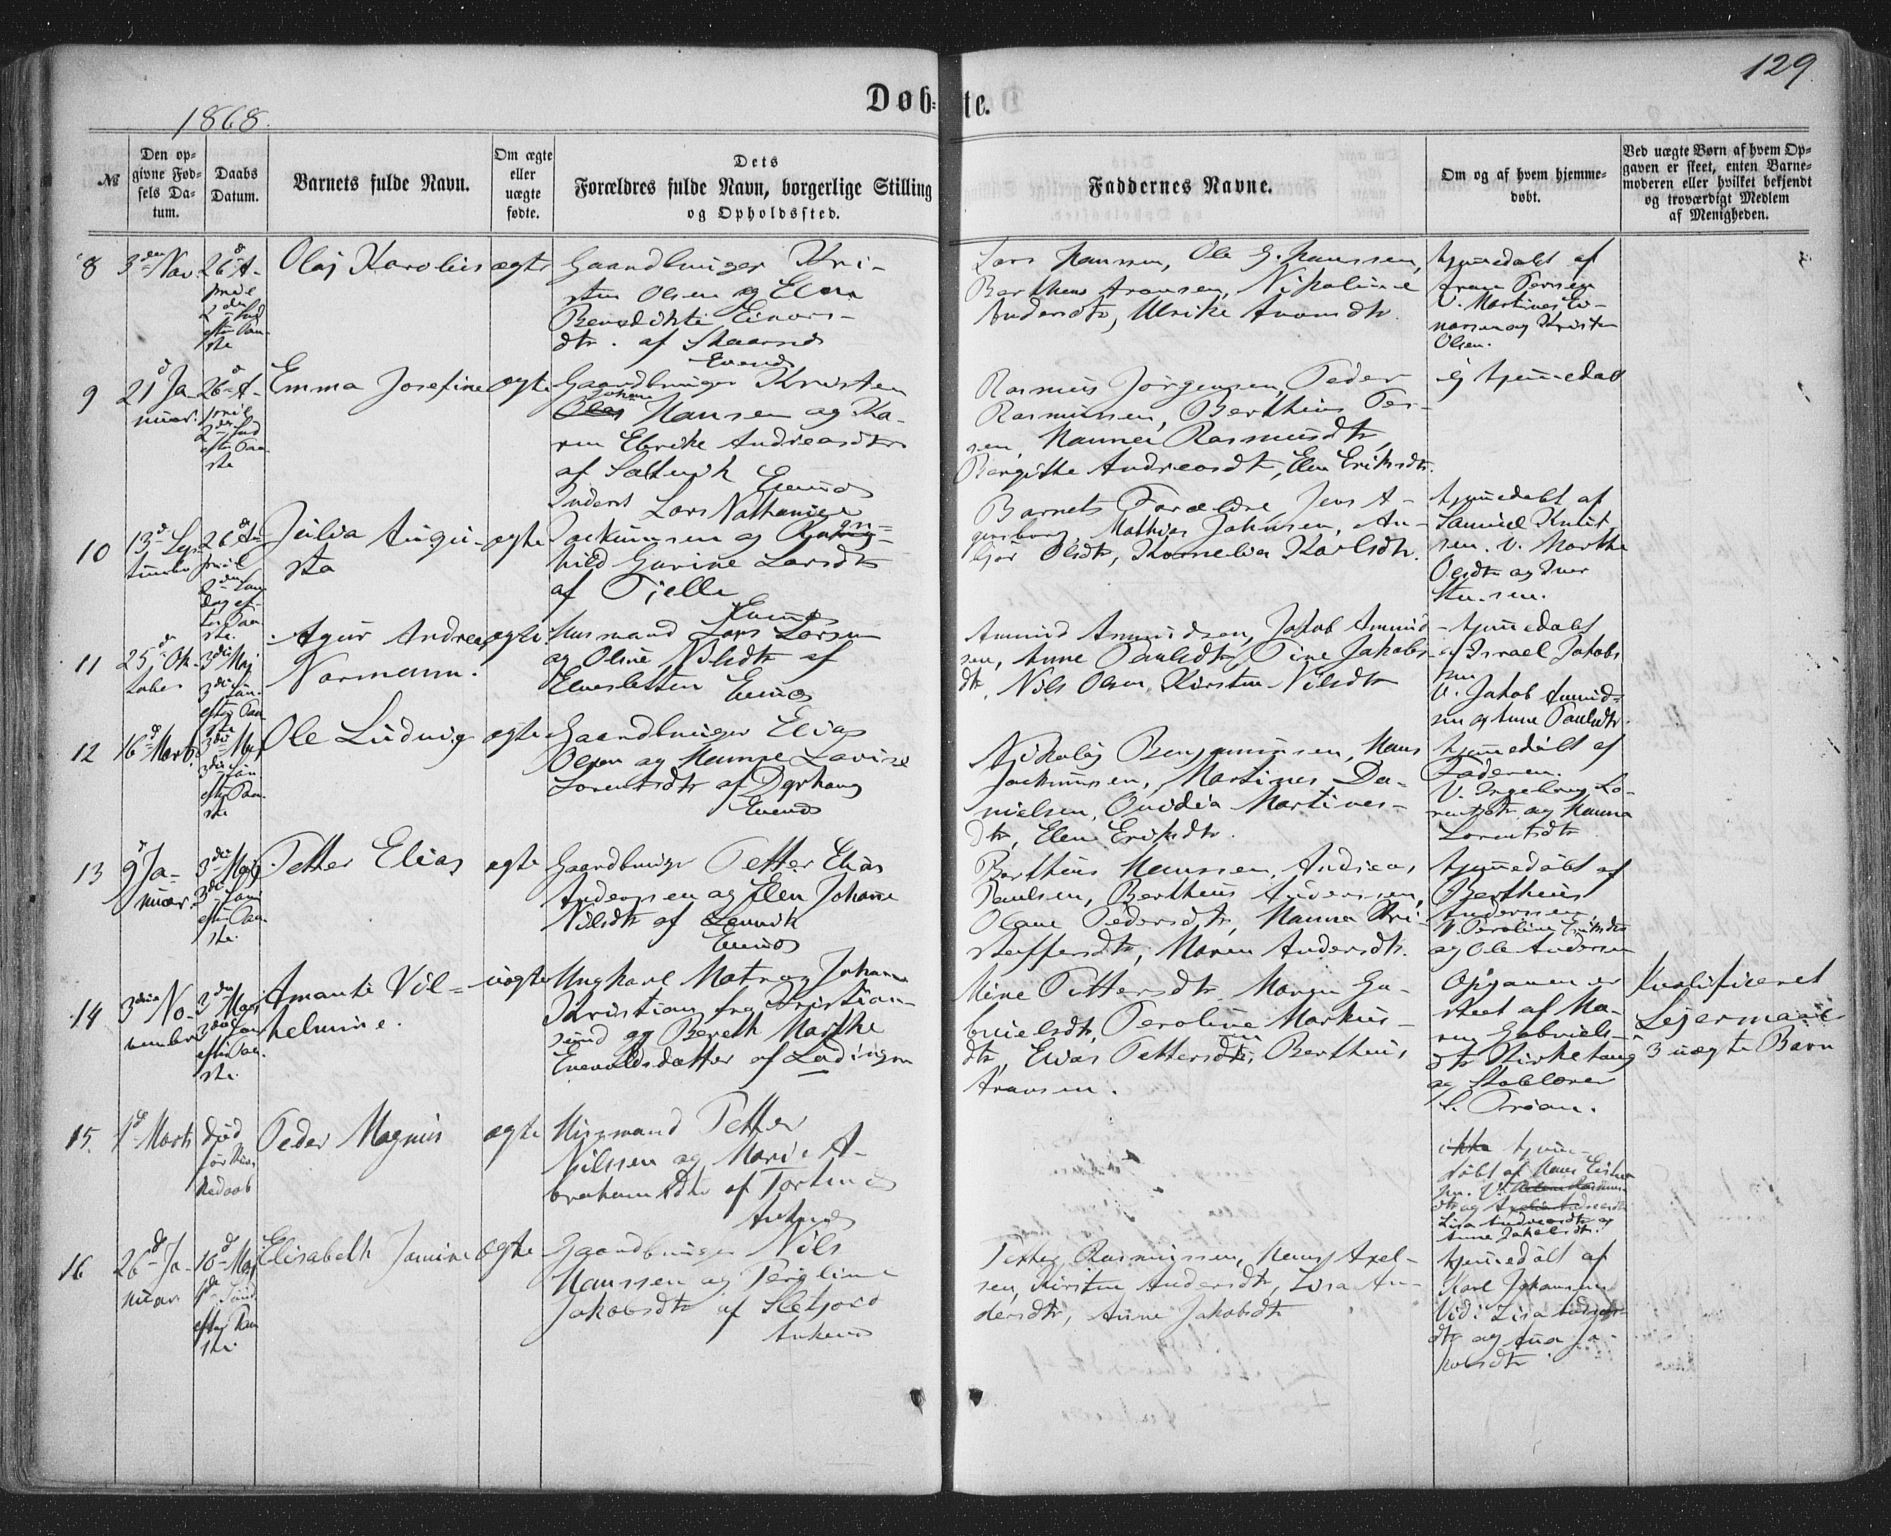 129
1868.
Døb-te.
№
Den op-
givne Fød-
sels Da-
tum.
Daabs
Datum.
Barnets fulde Navn.
Om ægte
eller
uægte
fødte.
Dets
Forældres fulde Navn, borgerlige Stilling
og Opholdssted.
Faddernes Navne.
Om og af hvem hjemme-
døbt.
Ved uægte Børn af hvem Op-
gaven er skeet, enten Barne-
moderen eller hvilket bekjendt
og troværdigt Medlem
af Menigheden.
8
3den Nov.
26d A-
pril
2den Sønd
efter Paa-
ske
Olaj Karolius
ægte
Gaardbruger Kri-
sten Olsen og Elen
Benedikte Einars-
dtr. af
Evenæs
Lars Hansen, Ole G. Hanssen,
Bertheus Aronsen, Nikoline
Andersdtr, Ulrike Aronsdtr.
hjemmedøbt af
Aron Persen
V. Martines Ei-
narsen og Kristen
Olsen.
9
21d Ja-
nuar.
26d A-
pril
2den Sønd
efter Paa-
ske
Emma Josefine
ægte
Gaardbruger Kristen
Johan
Hansen og Ka-
ren Elrike Andreasdtr
af Saltvik
Evenæs
Rasmus Jørgensen, Peder
Rasmussen, Bertheus Per-
sen, Hanna Rasmusdtr,
Bergitte Andreasdtr, Elen Eriksdtr.
ej hjemmedøbt
10
13d Sep-
tember
26d A-
pril
2den Søn-
dag ef-
ter Paa-
ske.
Julia Augu-
sta
ægte
Inderst Lars Nathanael
Joakimsen og
hild Gurine Larsdtr
af Tjelle
Evenæs
Barnets Forældre, Jens A-
Mathias Johnsen, An-
Olsdtr, Kornelia Karlsdtr.
hjemmedøbt af
Samuel Knut-
sen. V. Marthe
Olsdtr og Iver
11
25d Ok-
tober
3die Maj
3die Søn.
efter Paa-
ske
Agur Andreas
Normann.
ægte
Husmand Lars Larsen
og Oline Nilsdtr af
Evenæs
Amund Amundsen, Jakob Amund-
sen, Anne Paulsdtr, Tine Jakobs-
dtr, Nils Olsen, Kirsten Nilsdtr
hjemmedøbt
af Israel Jakob-
sen
V. Jakob Amund-
sen og Anne Paulsdtr.
12
16d Marts.
3die Maj
3die Søn
efter Paa-
ske
Ole Ludvig
ægte
Gaardbruger Elias
Olsen og Hanna Lovise
Lorentsdtr af Dyrhaug
Evenæs
Nikolaj Benjaminsen, Hans
Joakimsen, Martines Da-
nielsen, Ovidia Martines-
dtr, Elen Eriksdtr.
hjemmedøbt af
Faderen.
V. Ingeborg Lo-
rentsdtr og Hanna
Lorentsdtr
13
9d Ja-
nuar.
3die Maj
3die Søn
efter Paa-
ske.
Petter Elias
ægte
Gaardbruger Petter Elias
Andersen og Elen Johanne
Nilsdtr af Lenvik
Evenæs
Bertheus Hanssen, Andreas
Paulsen, Bertheus Andersen,
Olane Pedersdtr, Hanna Kri-
stoffersdtr, Maren Andersdtr.
hjemmedøbt af
Bertheus
Andersen
V. Peroline Eriksdtr
og Ole Andersen
14
3die No-
vember
3die Maj
3die Søn
efter Paa-
ske.
Amanti Vil-
helmine.
uægte
Ungkarl Matr og Johan
Kristian fra Kristian-
sund og Bereth Marthe
Enevoldsdatter af Lødingen
Mine Pettersdtr, Maren Ga-
brielsdtr, Peroline Markus-
dtr, Elias Pettersen, Bertheus
Aronsen.
Opgaven er
skeet af Ma-
ren Gabriels-
dtr Kirkehaug
og Skolelærer
S. Troan.
Kvalificeret
Lejermaal
3 uægte Barn
15.
1d Marts
død
før Kir-
kedaab
Peder Magnus
ægte
Husmand Petter
Nilssen og Marie A-
brahamsdtr af
Ankenæs
ikke hjemme-
døbt af Hans
Lisa Andreasdtr og
Anne Jakobsdtr.
16
26d Ja-
nuar
10d Maj
4de Sønd.
efter Paa-
ske.
Elisabeth Janine
ægte
Gaardbruger Nils
Hanssen og Peroline
Jakobsdtr af Sletjord
Ankenæs
Peder Rasmussen, Hans Axel-
sen, Kirsten Andersdtr, Lisa An-
dersdtr, Anne Jakobsdtr
hjemmedøbt af
Karl Johansen
Vidi: Lisa Anders-
dtr og Ana Ja-
kobsdtr.